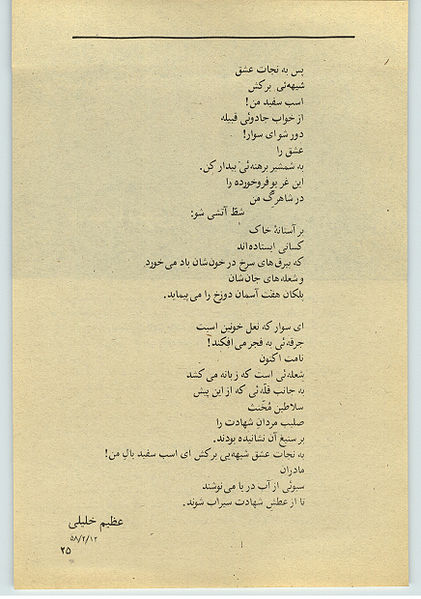 پس به نجات عشق
شیهه‌ئی برکش
اسب سفید من!
از خواب جادوئی قبیله
دور شو ای سوار!
عشق را
به شمشیر برهنه‌ئی بیدار کن.
این غریو فروخورده را
در شاهرگ من
شطّ آتشی شو:
بر آستانهٔ خاک
کسانی ایستاده‌اند
که بیرق‌های سرخ در خون‌شان باد می‌خورد
و شعله‌های جان‌شان
پلکان هفت آسمان دوزخ را می‌پیماید.
ای سوار که نعل خونین اسبت
جرقه‌ئی به فجر می‌افکند!
نامت اکنون
شعله‌ئی است که زبانه می‌کشد
به جانب قلّه‌ئی که از این پیش
سلاطین مُخنث
صلیب مردان شهادت را
بر ستیغ آن نشانیده بودند.
به نجات عشق شیهه‌یی برکش ای اسب سفید یال من!
مادران
سبوئی از آب دریا می‌نوشند
تا از عطش شهادت سیراب شوند.
عظیم خلیلی
۵۸/۲/۱۲
۲۵